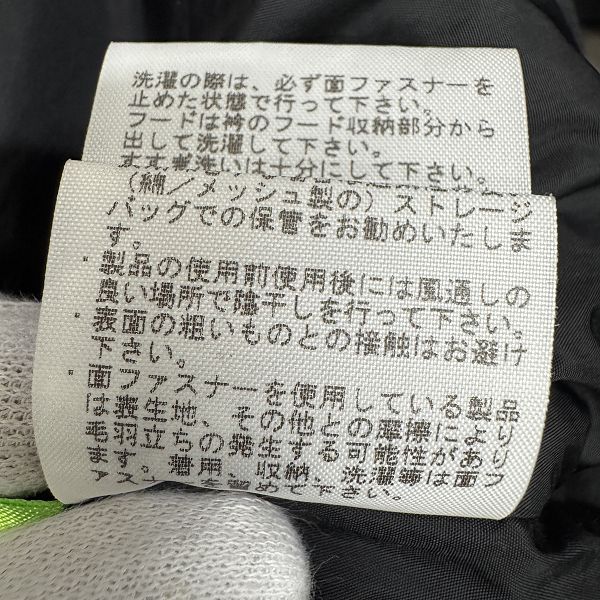 洗濯の際は、必ず面ファスナーを
止めた状態で行って下さい。
フードは衿のフード収納部分から
出して洗濯して下さい。
すすぎ洗いは十分にして下さい。
(綿/メッシュ製の)ストレージ
バッグでの保管をお勧めいたしま
す。
・製品の使用前使用後には風通しの
良い場所で陰干しを行って下さい。
・表面の粗いものとの接触はお避け
下さい。
・面ファスナーを使用している製品
は表生地、その他との摩擦により
毛羽立ちの発生する可能性があり
ます。着用、収納、洗濯等は面フ
ァスナーを留めて下さい。